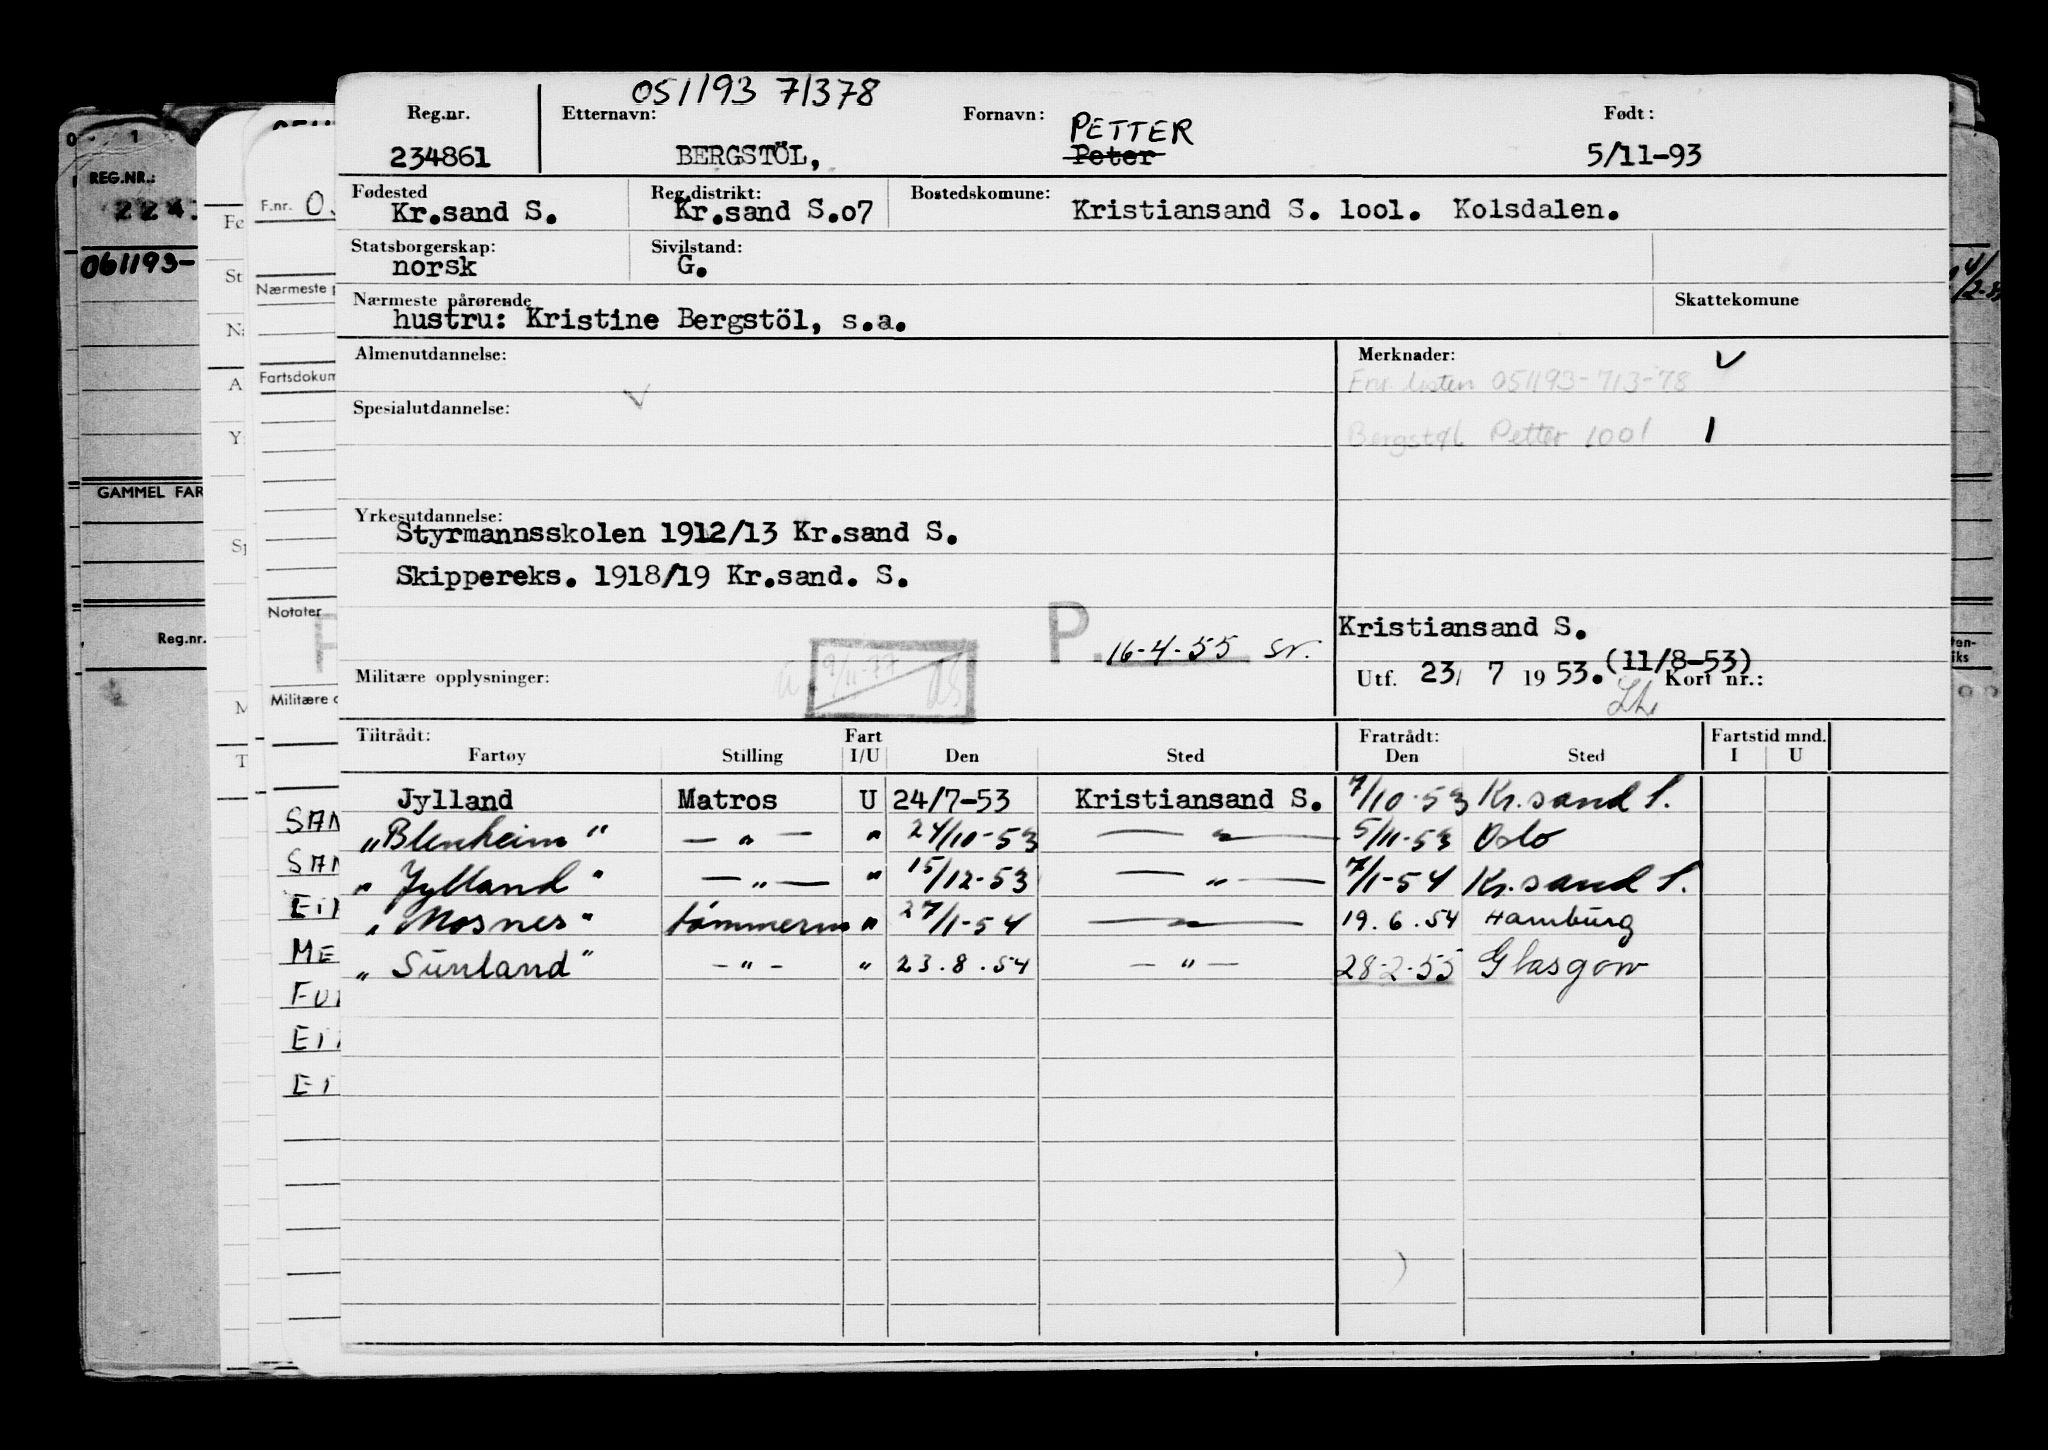 051193 71378
Reg.nr. Etternavn: Fornavn: Født:
PETTER
234861 BERGSTÖL, Peter 5/11-93
Fødested Reg.distrikt: Bostedskomune:
Kr.sand S. Kr.sand S.o7 Kristiansand S. 1oo1. Kolsdalen.
Statsborgerskap: Sivilstand:
norsk G.
Nærmeste pårørende Skattekomune
hustru: Kristine Bergstöl, s.a.
Almenutdannelse: Merknader:
Fnr. listen 051193-713-78
Spesialutdannelse:
Bergstøl Petter 1001
Yrkesutdannelse:
Styrmannsskolen 1912/13 Kr.sand S.
Skippereks. 1918/19 Kr.sand. S.
Kristiansand S.
P. 16-4-55 sr.
9/11-77
Militære opplysninger: Utf. 23/ 7 19 53. (11/8-53) Kort nr.:
Tiltrådt: Fart Fratrådt: Fartstid mnd.
Fartøy Stilling I/U Den Sted Den Sted I U
Jylland Matros U 24/7-53 Kristiansand S. 7/10-53 Kr.sand S.
"Blenheim" — " — " 24/10-53 — " — 5/11-53 Oslo
"Jylland" — " — " 15/12-53 — " — 7/1-54 Kr.sand S.
"Mosnes" tömmerm " 27/1-54 — " — 19.6.54 Hamburg
"Sunland" — " — " 23.8.54 — " — 28-2-55 Glasgow
REG.NR.:
061193-
GAMMEL FAR
Reg.nr.
F.nr. 0
Nærmeste p
Fartsdokum
Notater
Militære o
SAN
SAN
EI
ME
FU
EI
EI